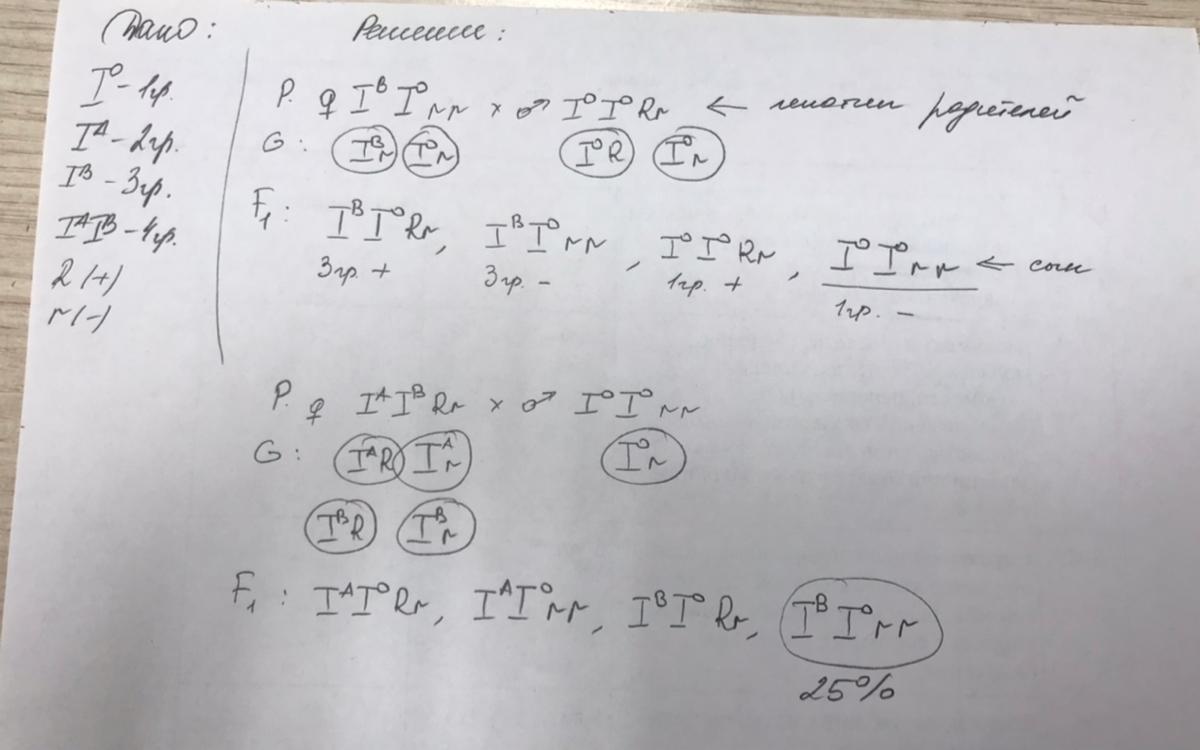 Дано:
Решение:
I⁰ - 1гр.
Iᴬ - 2гр.
Iᴮ - 3гр.
IᴬIᴮ - 4гр.
R (+)
r (-)
P. ♀ IᴮI⁰rr × ♂ I⁰I⁰Rr ← генотип родителей
G: Iᴮr I⁰r I⁰R I⁰r
F₁: IᴮI⁰Rr, IᴮI⁰rr, I⁰I⁰Rr, I⁰I⁰rr ← сын
3гр. + 3гр. - 1гр. + 1гр. -
P. ♀ IᴬIᴮRr × ♂ I⁰I⁰rr
G: IᴬR Iᴬr I⁰r
IᴮR Iᴮr
F₁: IᴬI⁰Rr, IᴬI⁰rr, IᴮI⁰Rr, IᴮI⁰rr
25%